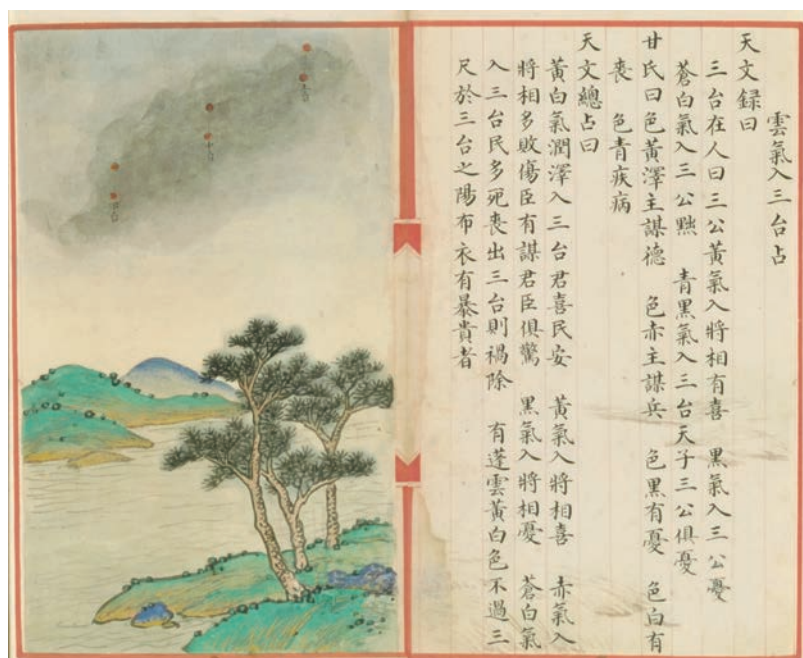 雲氣入三台占
天文録曰
三台在人曰三公黃氣入將相有喜 黑氣入三公憂
蒼白氣入三公黜 青黑氣入三台天子三公俱憂
甘氏曰色黃澤主謀德 色赤主謀兵 色黑有憂 色白有
喪 色青疾病
天文總占曰
黃白氣潤澤入三台君喜民安 黃氣入將相喜 赤氣入
將相多敗傷臣有謀君臣俱驚 黑氣入將相憂 蒼白氣
入三台民多死喪出三台則禍除 有蓬雲黃白色不過三
尺於三台之陽布衣有暴貴者